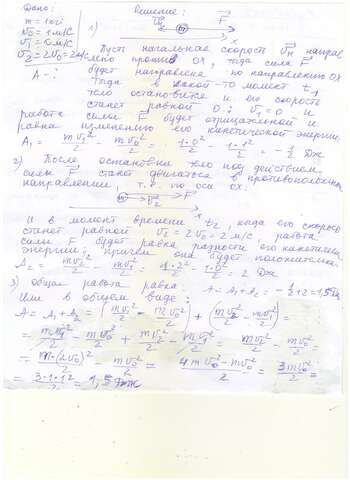 Дано: Решение:
m = 1кг 1) v₀ m F
v₀ = 1 м/с x
v₁ = 0 м/с Пусть начальная скорость v₀ направ
v₂ = 2v₀ = 2 м/с лено против OX, тогда сила F
A - ? будет направлена по направлению OX
Тогда в какой-то момент t₁
тело остановится и его скорость
станет равной 0: v₁ = 0 и
работа силы F будет отрицательной и
равна изменению его кинетической энергии.
A₁ = mv₁²/2 - mv₀²/2 = 1·0²/2 - 1·1²/2 = - 1/2 Дж
2) После остановки тело под действием
силы F станет двигаться в противоположном
направлении т.е. по оси ox:
m F
v₂ x
И в момент времени t₂, когда его скорость
станет равной v₂ = 2v₀ = 2 м/с работа
силы F будет равна разности его кинетич.
энергий: причем она будет положительна.
A₂ = mv₂²/2 - mv₁²/2 = 1·2²/2 - 1·0²/2 = 2 Дж
3) Общая работа равна: A = A₁ + A₂ = - 1/2 + 2 = 1,5 Дж
Или в общем виде:
A = A₁ + A₂ = (mv₁²/2 - mv₀²/2) + (mv₂²/2 - mv₁²/2) =
= mv₁²/2 - mv₀²/2 + mv₂²/2 - mv₁²/2 = mv₂²/2 - mv₀²/2 =
= m(2v₀)²/2 - mv₀²/2 = 4mv₀² - mv₀²/2 = 3mv₀²/2 =
= 3·1·1²/2 = 1,5 Дж